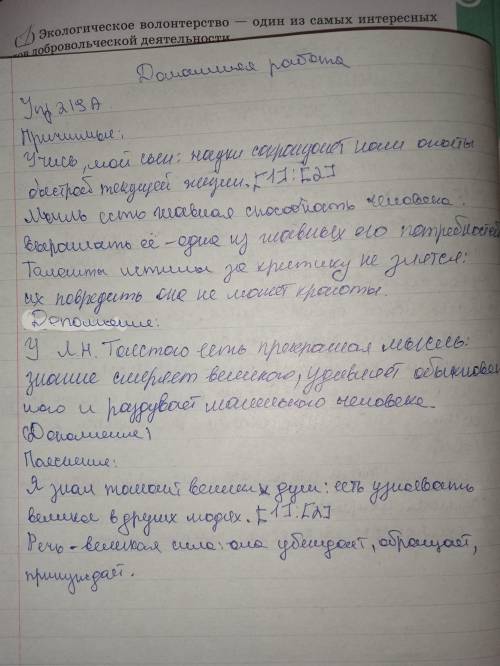 Экологическое волонтерство — один из самых интересных
добровольческой деятельности
Домашняя работа
Упр 219А
Причинные:
Учись, мой сын: науки сокращают нам опыты
быстротекущей жизни. [1]:[2]
Мысль есть главная способность человека:
выражать её – одна из главных его потребностей
Таланты истины за критику не злятся:
их повредить она не может красоты.
Дополнение:
У Л.Н. Толстого есть прекрасная мысль:
знание смиряет великого, удивляет обыкновен
ного и раздувает маленького человека.
(Дополнение)
Пояснение:
Я знал талант великих душ: есть узнавать
великое в других людях. [1]:[2]
Речь – великая сила: она убеждает, обращает,
принуждает.